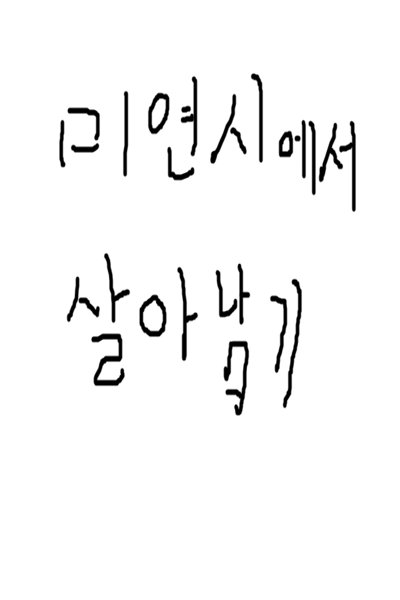 미연시에서
살아남기